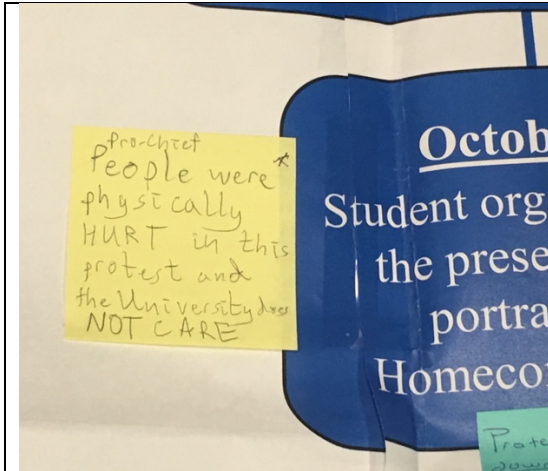 pro-Chief
People were *
physically
HURT in this
protest and
the University does
NOT CARE
Octob
Student org
the prese
portra
Homeco
Prote